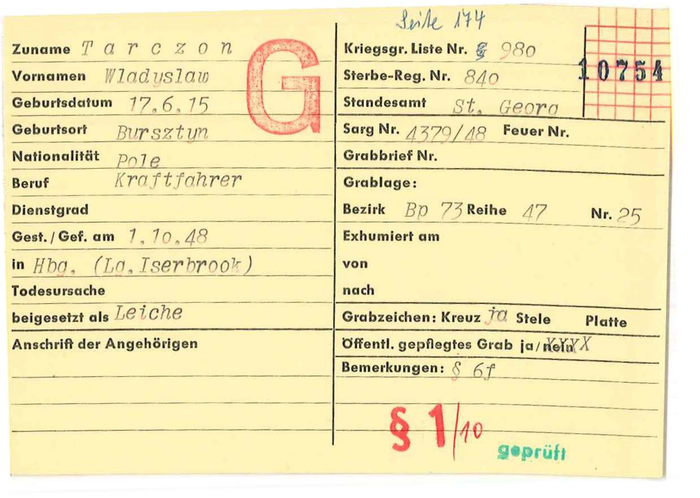 Seite 174
Zuname Tarczon
Vornamen Wladyslaw
Geburtsdatum 17.6.15
Geburtsort Bursztyn
Nationalität Pole
Beruf Kraftfahrer
Dienstgrad
Gest./Gef. am 1.10.48
in Hbg. (Lg. Iserbrook)
Todesursache
beigesetzt als Leiche
Anschrift der Angehörigen
G
Kriegsgr. Liste Nr. § 980
10754
Sterbe-Reg. Nr. 840
Standesamt St. Georg
Sarg Nr. 4379/48 Feuer Nr.
Grabbrief Nr.
Grablage:
Bezirk Bp 73 Reihe 47 Nr. 25
Exhumiert am
von
nach
Grabzeichen: Kreuz ja Stele Platte
Öffentl. gepflegtes Grab ja/nein XXXX
Bemerkungen: § 6f
§ 1/10
geprüft